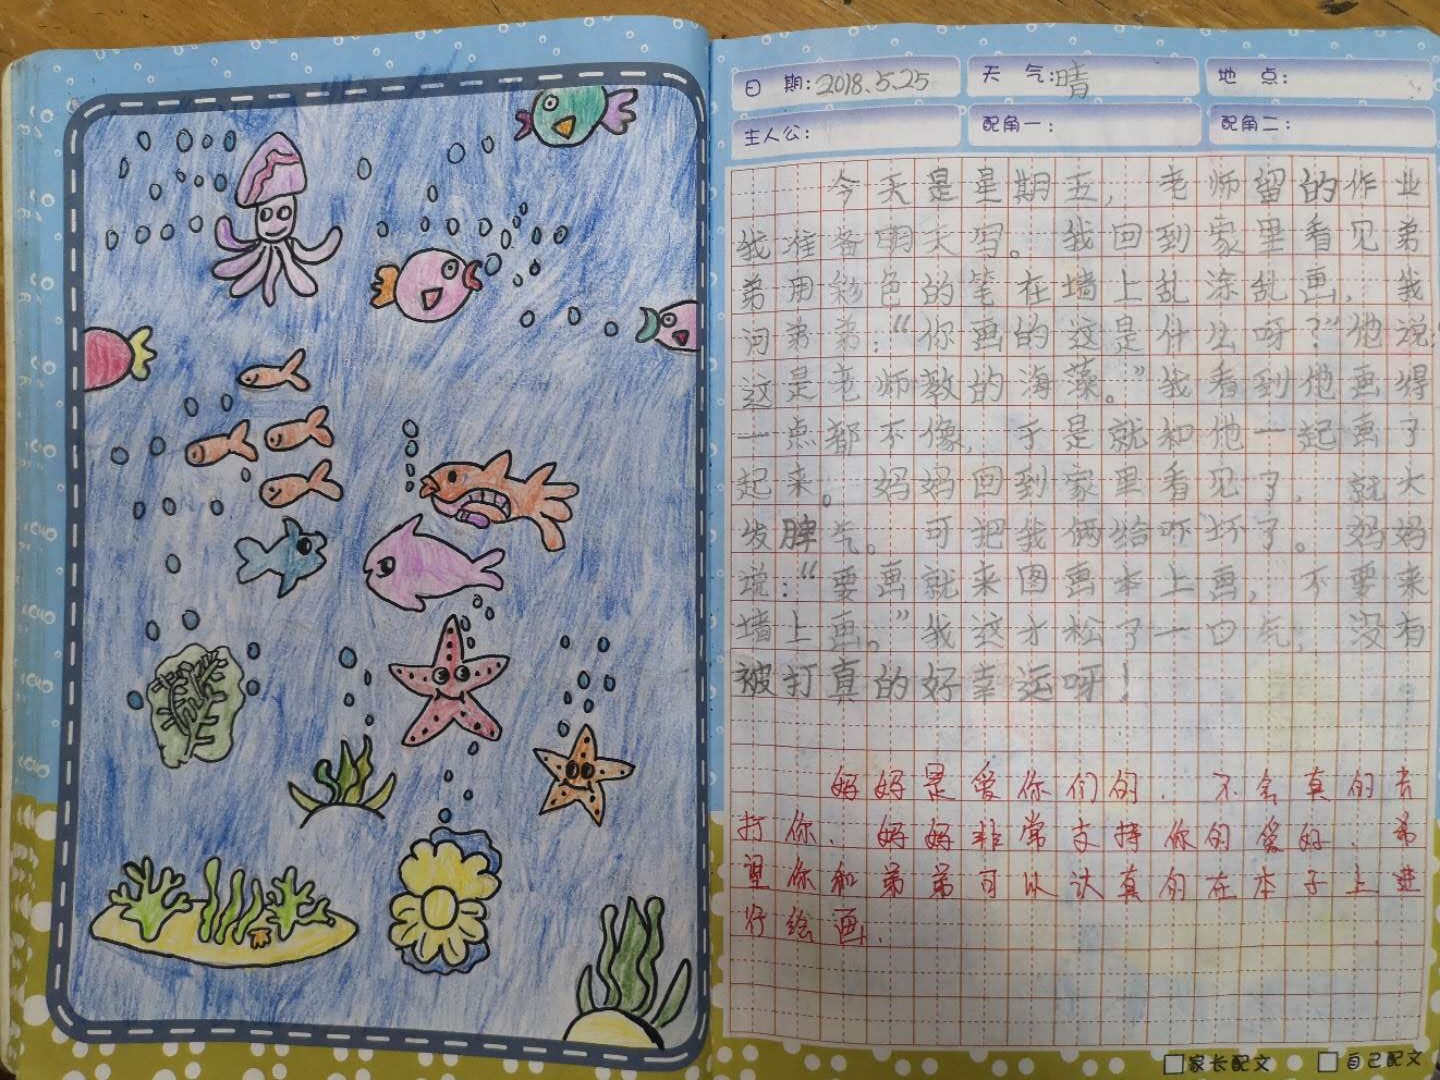 日 期: 2018.5.25 天 气: 晴 地 点:
主人公: 配角一: 配角二:
今天是星期五，老师留的作业
我准备明天写。我回到家里看见弟
弟用彩色的笔在墙上乱涂乱画，我
问弟弟：“你画的这是什么呀？”他说：
这是老师教的海藻。”我看到他画得
一点都不像，于是就和他一起画了
起来。妈妈回到家里看见了，就大
发脾气。可把我俩给吓坏了。妈妈
说：“要画就来图画本上画，不要来
墙上画。”我这才松了一口气，没有
被打真的好幸运呀！
妈妈是爱你们的，不会真的去
打你，妈妈非常支持你的爱好，希
望你和弟弟可以认真的在本子上进
行绘画.
家长配文 自己配文